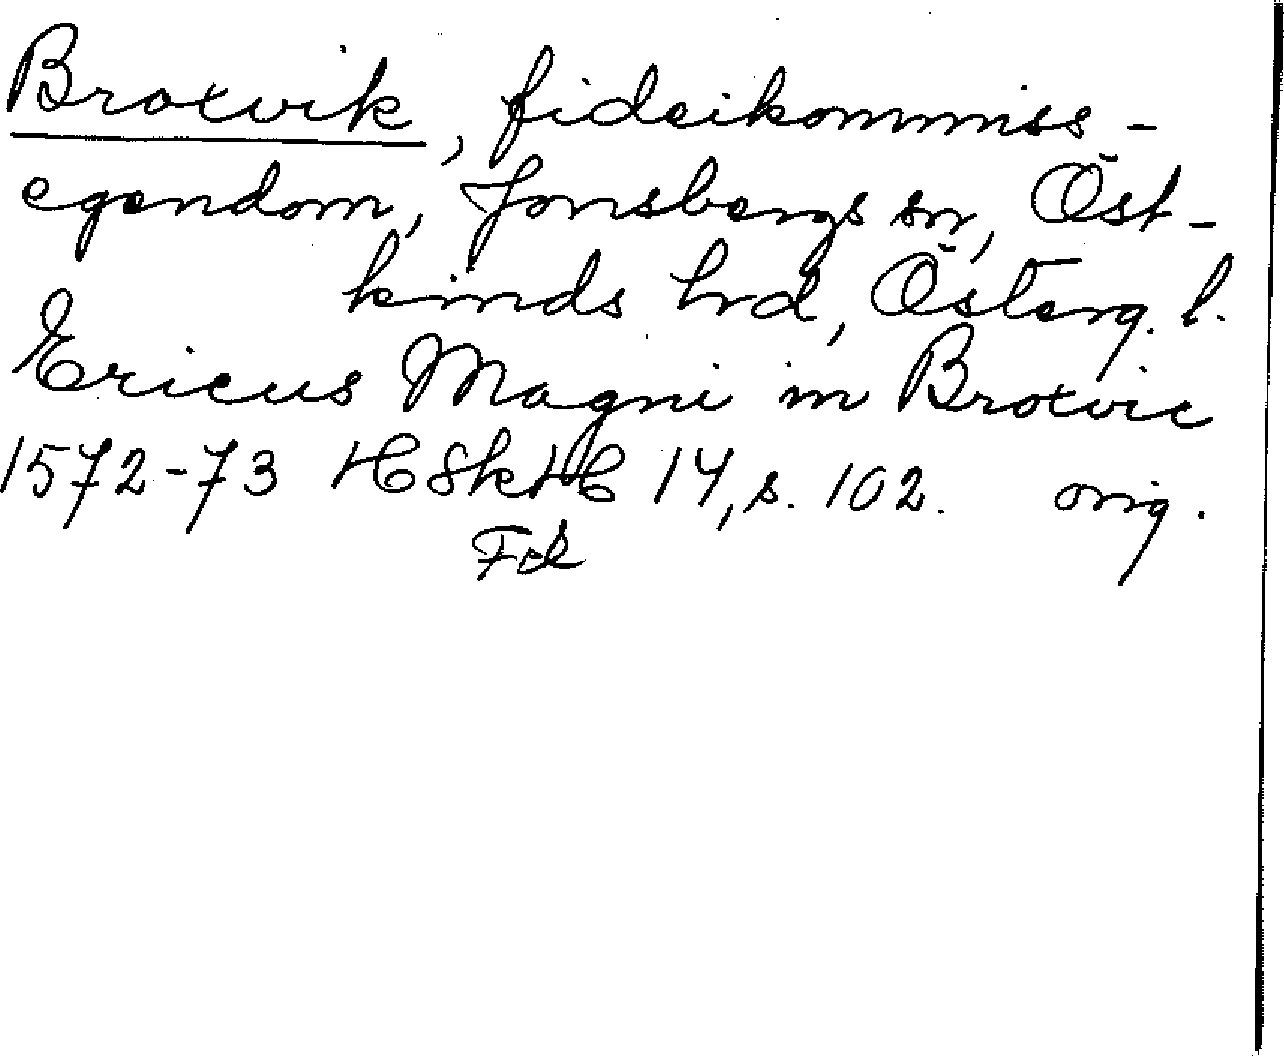 Broxvik, fideikommiss-
egendom, Jonsbergs sn, Öst-
kinds hrd, Österg. l.
Ericus Magni in Broxvic
1572-73 HSkHC 14, s. 102. orig.